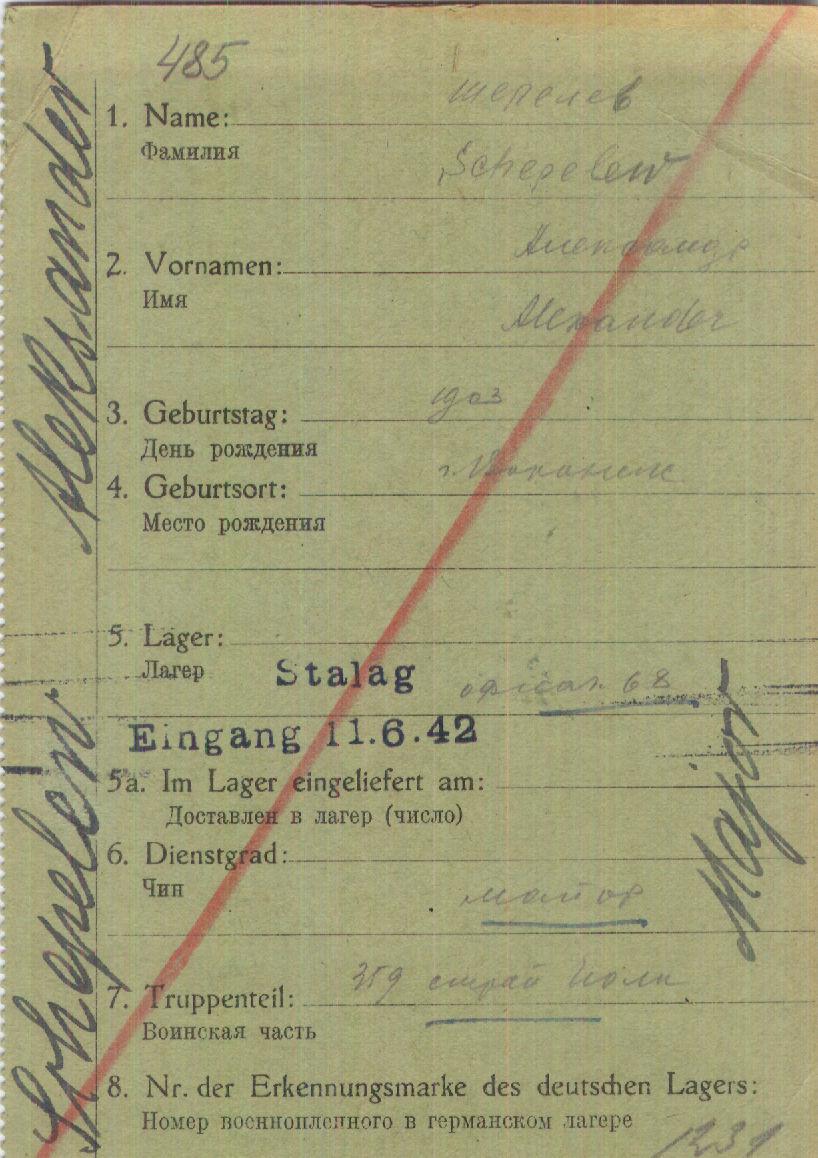 485
1. Name: Шепелев
Фамилия
Schepelew
2. Vornamen: Александр
Имя
Alexander
3. Geburtstag: 1903
День рождения
4. Geburtsort:
Место рождения
5. Lager:
Лагер Stalag офісал. 68
Eingang 11.6.42
5a. Im Lager eingeliefert am:
Доставлен в лагер (число)
6. Dienstgrad:
Чин майор
7. Truppenteil: 359
Воинская часть
8. Nr. der Erkennungsmarke des deutschen Lagers:
Номер военнопленного в германском лагере
Schepelew Aleksander
Major